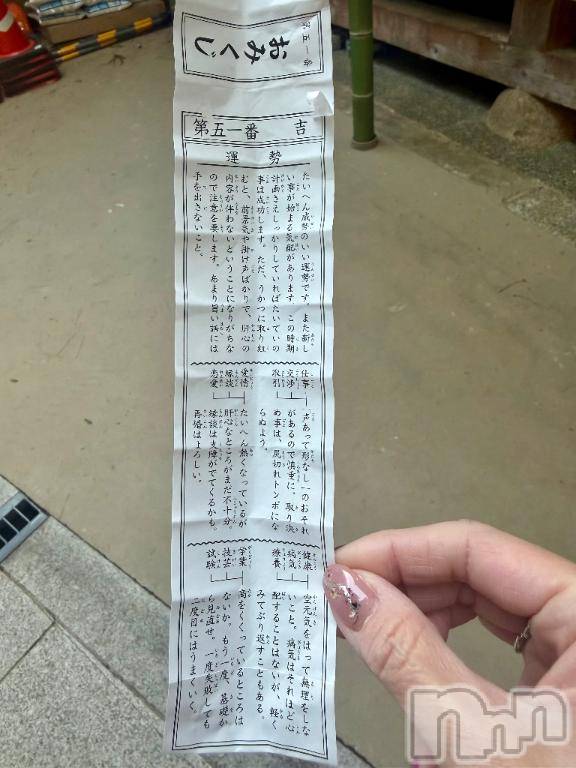 第五一番
おみくじ
第五一番 吉
運勢
たいへん威勢のいい運勢です。また新し
い事が始まる気配があります。この時期
計画さえしっかりしていればたいていの
事は成功します。ただ、うかつに取り組
むと、前景気や掛け声ばかりで、肝心の
内容が伴わないということになりがちな
ので注意を要します。あまり旨い話には
手を出さないこと。
仕事
交渉
取引
「声あって形なし」のおそれ
があるので慎重に。取り決
め事は、尻切れトンボにな
らぬよう。
愛情
縁談
恋愛
たいへん熱くなっているが
肝心なところがまだ不十分。
縁談は支障がでてくるかも。
再婚はよろしい。
健康
病気
療養
空元気をはって無理をしな
いこと。病気はそれほど心
配することはないが、軽く
みてぶり返すこともある。
学業
技芸
試験
高をくくっているところは
ないか。もう一度、基礎か
ら見直せ。一度失敗しても
二度目にはうまくいく。
nnn